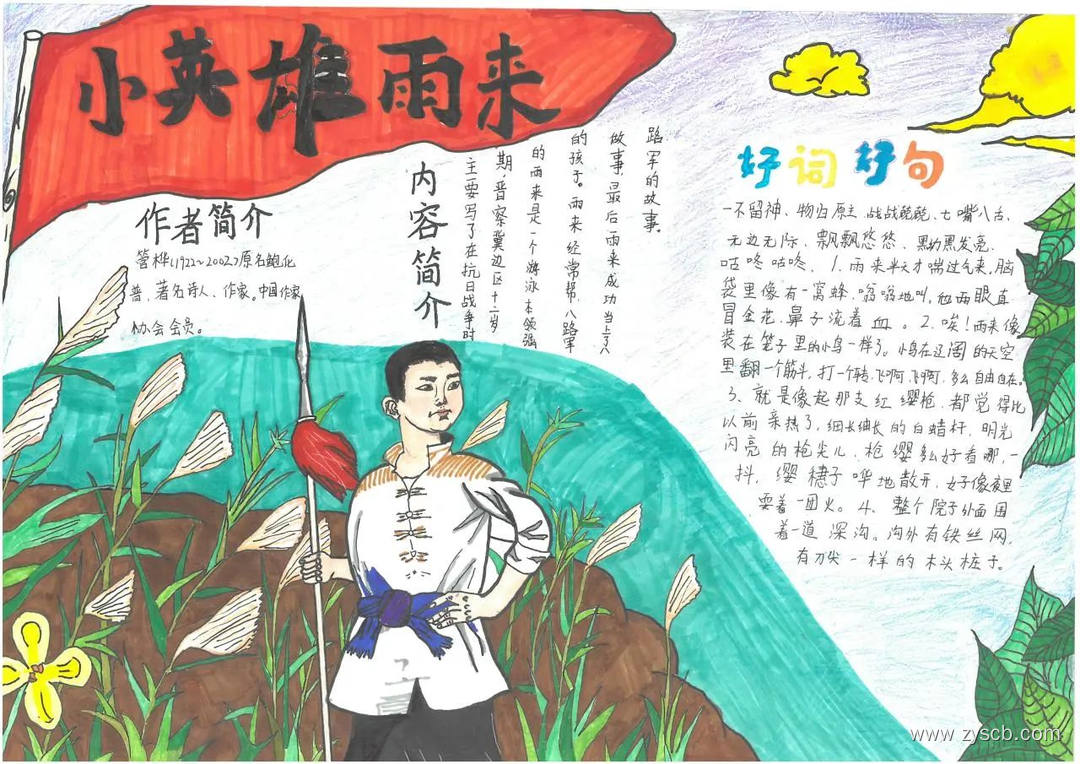 小英雄雨来
作者简介
管桦(1922~2002)原名鲍化
普,著名诗人、作家。中国作家
协会会员。
内容简介
主要写了在抗日战争时
期,晋察冀边区十二岁
的雨来是一个游泳本领强
的孩子。雨来经常帮八路军
做事,最后雨来成功当上了八
路军的故事。
好词好句
一不留神、物归原主、战战兢兢、七嘴八舌、
无边无际、飘飘悠悠、黑黝黝发亮、
咕咚咕咚、1.雨来半天才喘过气来,脑
袋里像有一窝蜂,嗡嗡地叫,他两眼直
冒金花,鼻子流着血。2.唉!雨来像
装在笼子里的小鸟一样了。小鸟在辽阔的天空
里翻一个筋斗,打一个转,飞啊,飞啊,多么自由自在。
3、就是像起那支红缨枪,都觉得比
以前亲热了,细长细长的白蜡杆,明光
闪亮的枪尖儿,枪缨多么好看哪,一
抖,缨穗子哗地散开,好像夜里
耍着一团火。4、整个院子外面围
着一道深沟。沟外有铁丝网,
有刀尖一样的木头桩子。
www.zyscb.com